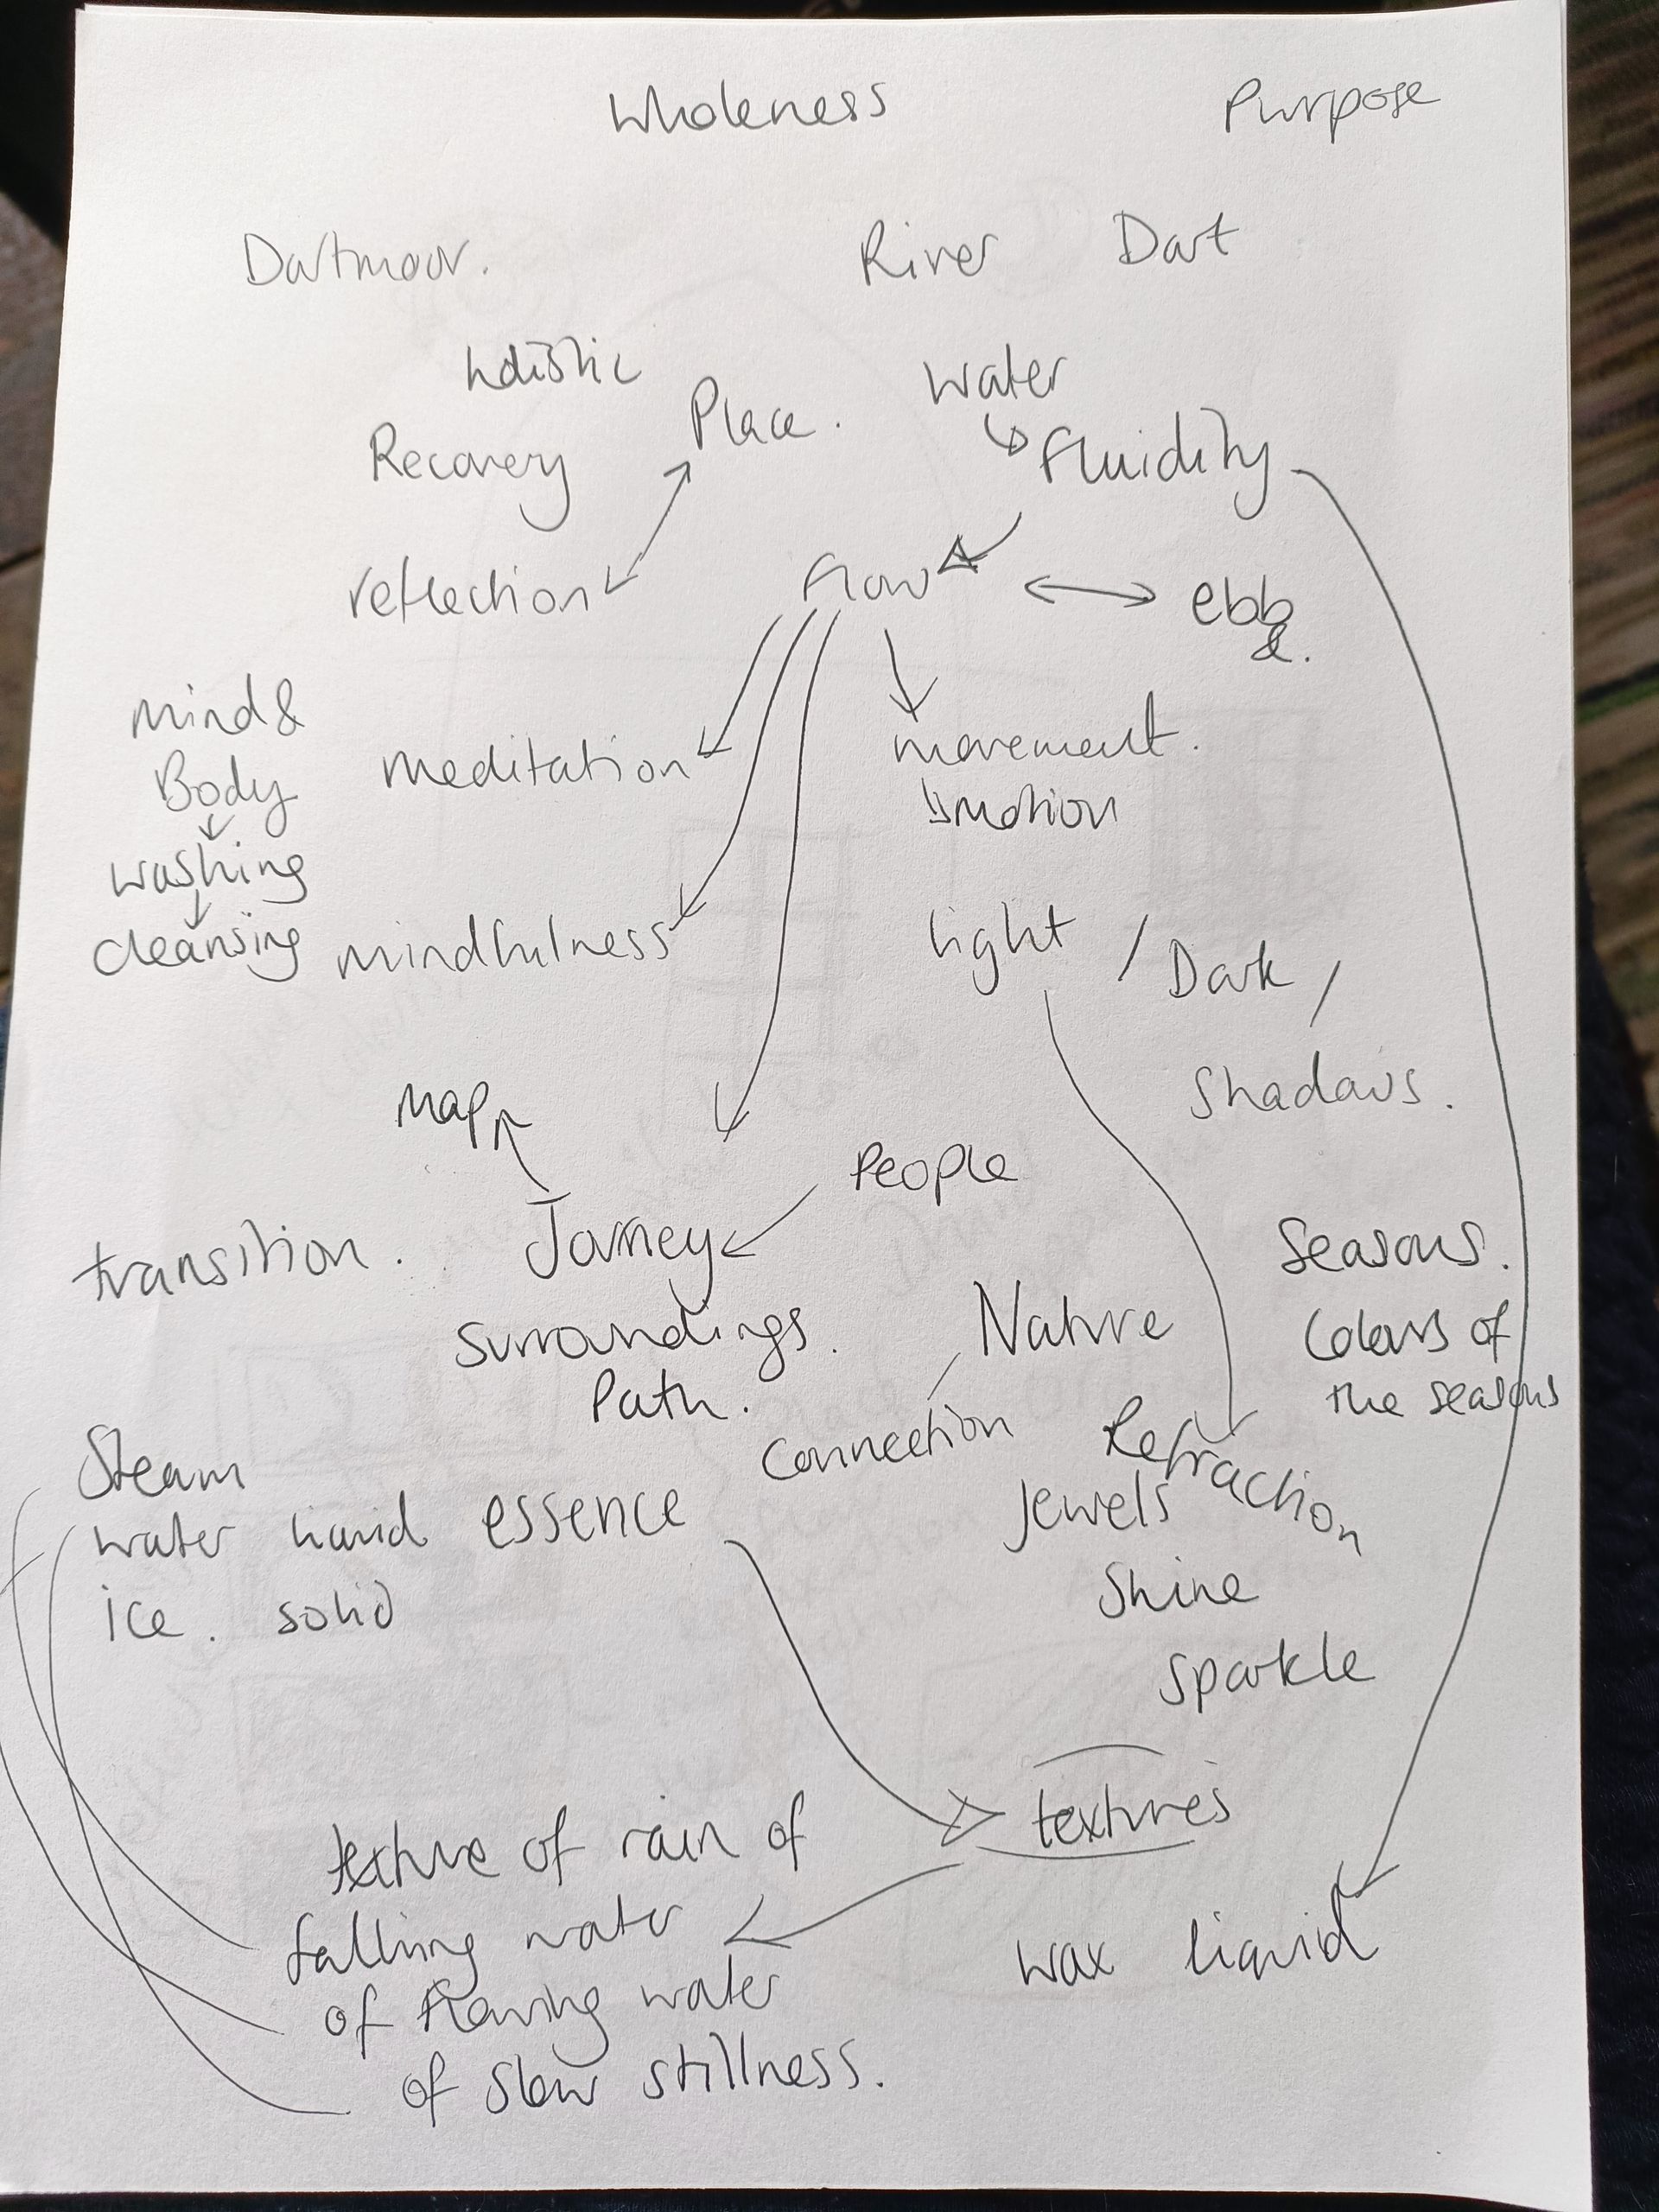 Wholeness Purpose
Dartmoor. River Dart
holistic
Place. water
Recovery fluidity
reflection flow ebb
&.
mind &
Body meditation movement.
motion
washing
cleansing mindfulness light / Dark /
Shadows.
Map
People
transition. Journey Seasons.
Surroundings. Nature Colours of
Path. the seasons
Connection Refraction
Steam
water liquid essence Jewels
ice. solid Shine
Sparkle
textures
texture of rain of
falling water
wax liquid
of flowing water
of slow stillness.